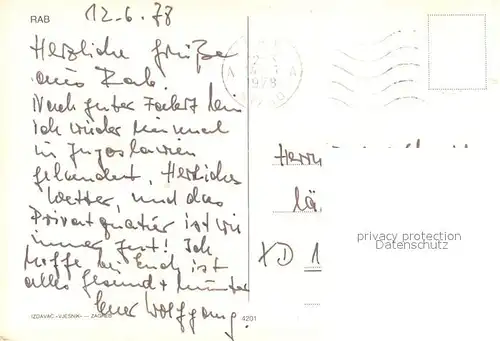 RAB
12.6.78
Herzliche Grüße
aus Rab.
Nach guter Fahrt bin
ich wieder einmal
in Jugoslawien
gelandet. Herrliches
Wetter, und das
Privatquatier ist wie
immer gut! Ich
hoffe bei Euch ist
alles gesund + munter
Euer Wolfgang.
IZDAVAČ »VJESNIK« — ZAGREB
4201
1978
A
A
Herrn
XD 1
privacy protection
Datenschutz